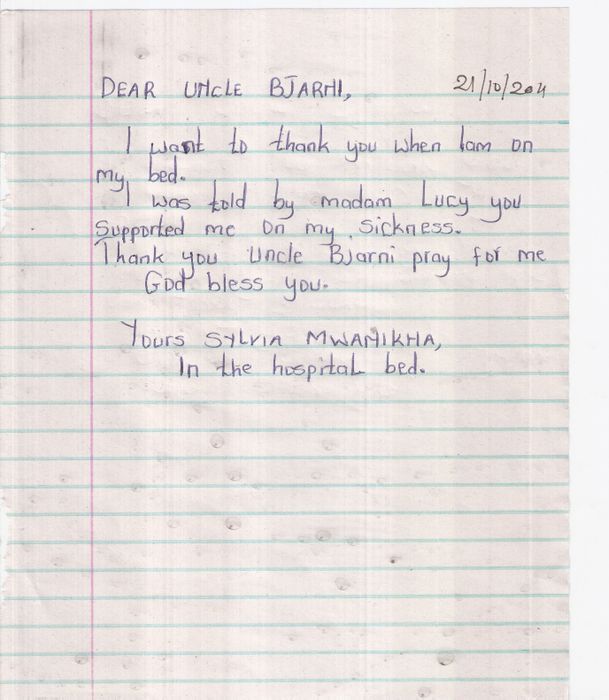 DEAR UNCLE BJARNI, 21/10/2011
I want to thank you when Iam on
my bed.
I was told by madam Lucy you
Supported me on my sickness.
Thank you Uncle Bjarni pray for me
God bless you.
Yours SYLVIA MWANIKHA,
In the hospital bed.